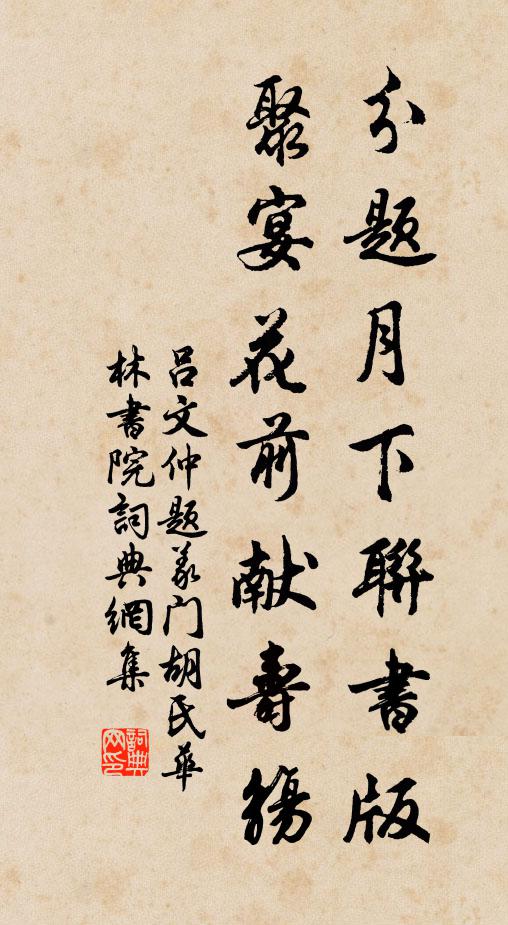 分题月下聯書版
聚宴花前献壽觴
吕文仲题義门胡氏華
林書院詞典網集
詞典
网印